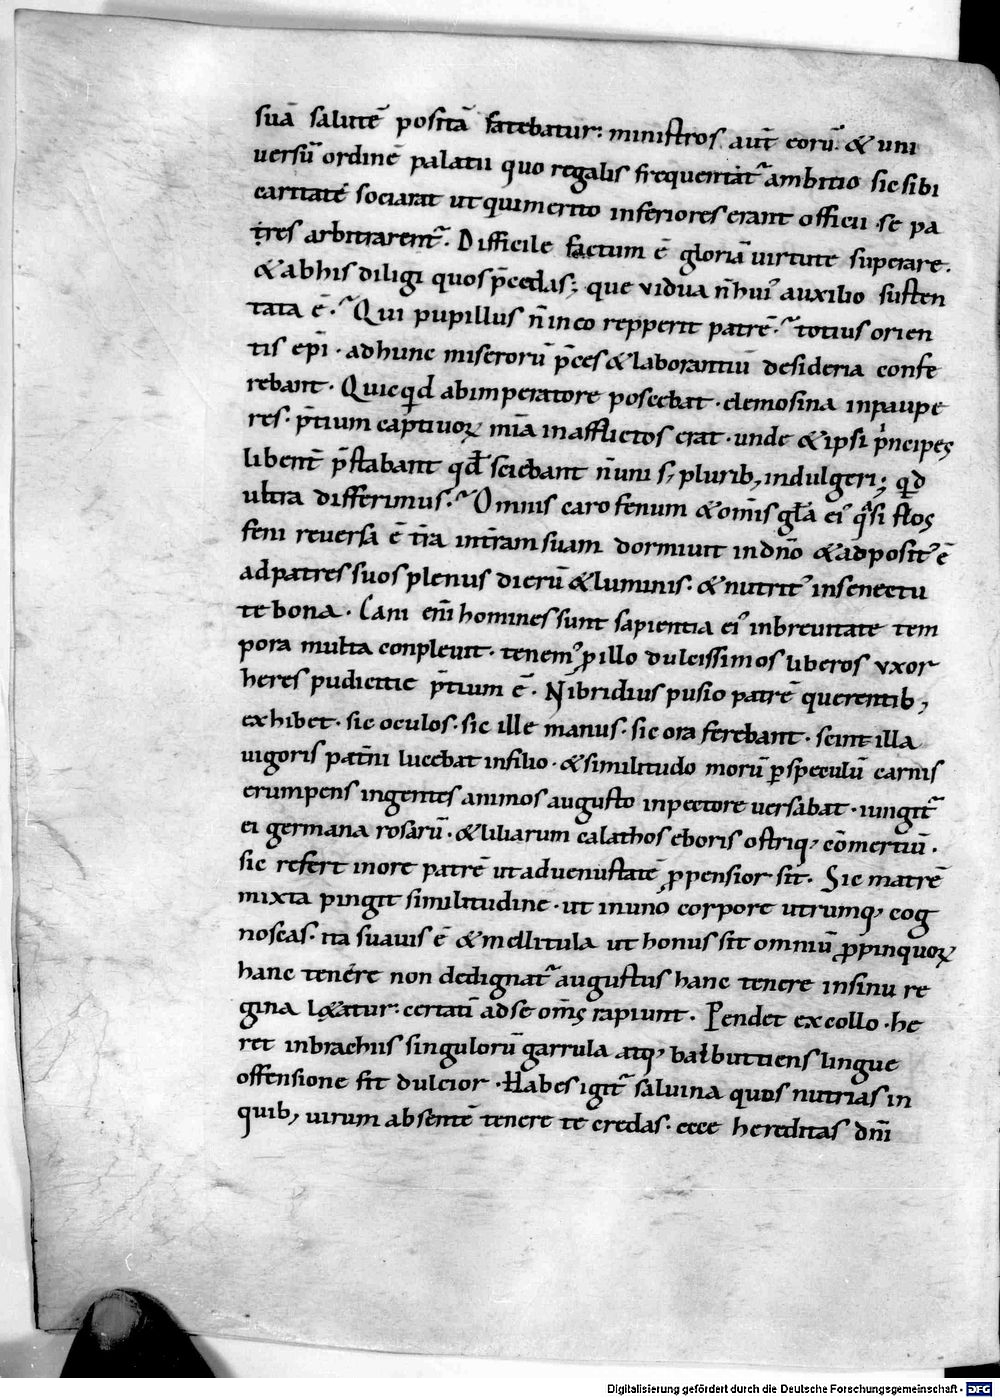 suā salutē positā fatebatur: ministros aut̄ eorū. & uni
uersū ordinē palatii quo regalis frequentat᷑ ambitio sic sibi
caritate sociarat ut qui merito inferiores erant officii se pa
tres arbitrarent᷑. Difficile factum ē gloriā uirtute superare.
& ab his diligi quos p̄cedas; que vidua n̄ hui᷒ auxilio susten
tata ē. Qui pupillus n̄ in eo repperit patrē. totius orien
tis ep̄i. ad hunc miserorū p̄ces & laborantiū desideria confe
rebant. Quicqd̄ ab imperatore poscebat. elemosina in paupe
res. p̄tium captiuoꝝ mīa in afflictos erat. unde & ipsi pͥncipes
libent̄ p̄stabant qd̄ sciebant n̄ uni s; plurib; indulgeri; qd
ultra differimus. Omnis caro fenum & om̄is gl̄a ei᷒ qͣsi flos
feni reuersa ē t̄ra in t̄ram suam dormiuit in dn̄o & adposit᷒ ē
ad patres suos plenus dierū & luminis. & nutrit᷒ in senectu
te bona. Cani enī homines sunt sapientia ei᷒ in breuitate tem
pora multa conpleuit. tenem᷒ ꝓ illo dulcissimos liberos vxor
heres pudicitie p̄tium ē. Nibridius pusio patrē querentib;
exhibet. sic oculos. sic ille manus. sic ora ferebant. scintilla
uigoris pat̄ni lucebat in filio. & similitudo morū ꝑ speculū carnis
erumpens ingentes animos augusto in pectore uersabat. iungit᷑
ei germana rosarū. & liliarum calathos eboris ostriq; cōmertiū.
sic refert inore patrē ut ad uenustatē ꝓpensior sit. Sic matrē
mixta pingit similitudine. ut in uno corpore utrumq; cog
noscas. ita suauis ē & mellitula ut honus sit omniū ꝓpinquoꝝ
hanc tenére non dedignat᷑ augustus hanc tenere in sinu re
gina l&atur: certatī ad se om̄s rapiunt. Pendet ex collo. he
ret in brachiis singulorū garrula atq; balbuttiens lingue
offensione fit dulcior. Habes igit᷑ saluina quos nutrias in
quib; uirum absentē tenere te credas. ecce hereditas dn̄i
Digitalisierung gefördert durch die Deutsche Forschungsgemeinschaft - DFG